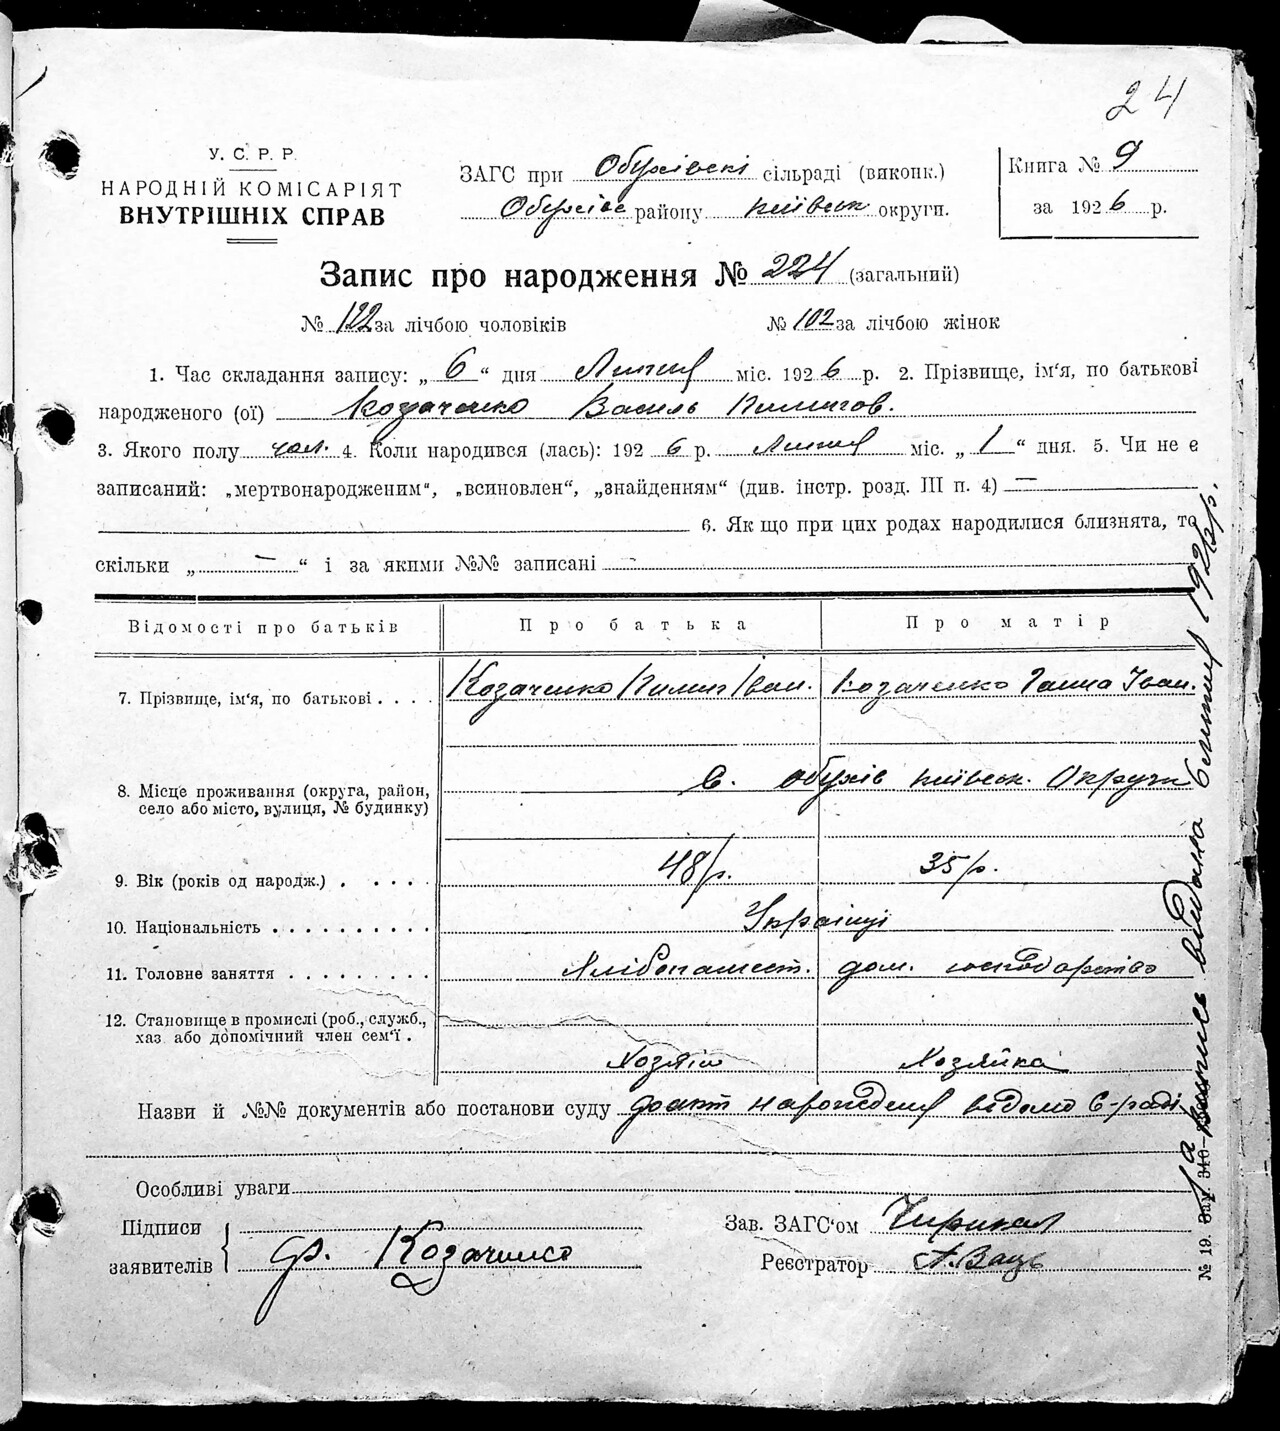 24
У. С. Р. Р.
НАРОДНІЙ КОМІСАРІЯТ
ВНУТРІШНІХ СПРАВ
ЗАГС при Обухівскі сільраді (виконк.)
Обухівс району Київськ округи.
Книга № 9
за 1926 р.
Запис про народження № 224 (загальний)
№ 122 за лічбою чоловіків № 102 за лічбою жінок
1. Час складання запису: „ 6 “ дня Липня міс. 1926 р. 2. Прізвище, ім'я, по батькові
народженого (ої) Козаченко Василь Килигов.
3. Якого полу чол. 4. Коли народився (лась): 1926 р. Липня міс. „ 1 “ дня. 5. Чи не є
записаний: „мертвонародженим“, „всиновлен“, „знайденням“ (див. інстр. розд. III п. 4) —
6. Як що при цих родах народилися близнята, то
скільки „ — “ і за якими №№ записані —
Відомості про батьків Про батька Про матір
7. Прізвище, ім'я, по батькові . . . . Козаченко Іван. Козаченко Ганна Іван.
8. Місце проживання (округа, район,
село або місто, вулиця, № будинку) С. Обухів Київськ. Округи
9. Вік (років од народж.) . . . . . 48 р. 35 р.
10. Національність . . . . . . . . . . Українці
11. Головне заняття . . . . . . . . . Хлібопашест. дом. господарство
12. Становище в промислі (роб., служб.,
хаз або допомічний член сем'ї . Хозяїн Хозяйка
Назви й №№ документів або постанови суду факт народження відомо С-раді
Особливі уваги
Підписи
заявителів Козаченко
Зав. ЗАГС'ом
Реєстратор
№ 19. Зак. 340— Випись видана 6 Липня 1926 р.